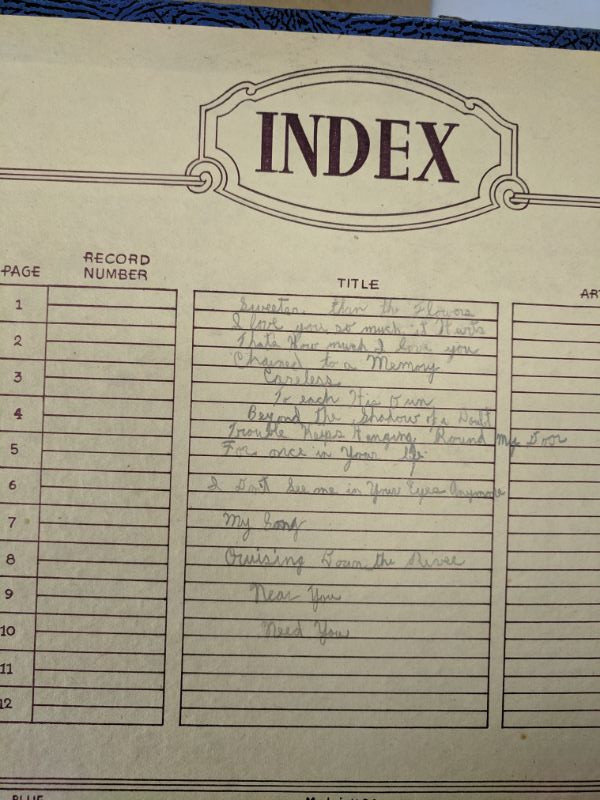 INDEX
PAGE RECORD NUMBER TITLE
1 Sweeter than the Flowers
I love you so much it Hurts
2 Thats How much I love you
Chained to a Memory
3 Careless
To each His Own
4 Beyond the Shadow of a Doubt
Trouble Keeps Hanging Round My Door
5 For once in Your life
6 I Don't See me in Your Eyes Anymore
7 My Song
8 Cruising Down the River
9 Near You
10 Need You
11
12
BLUE